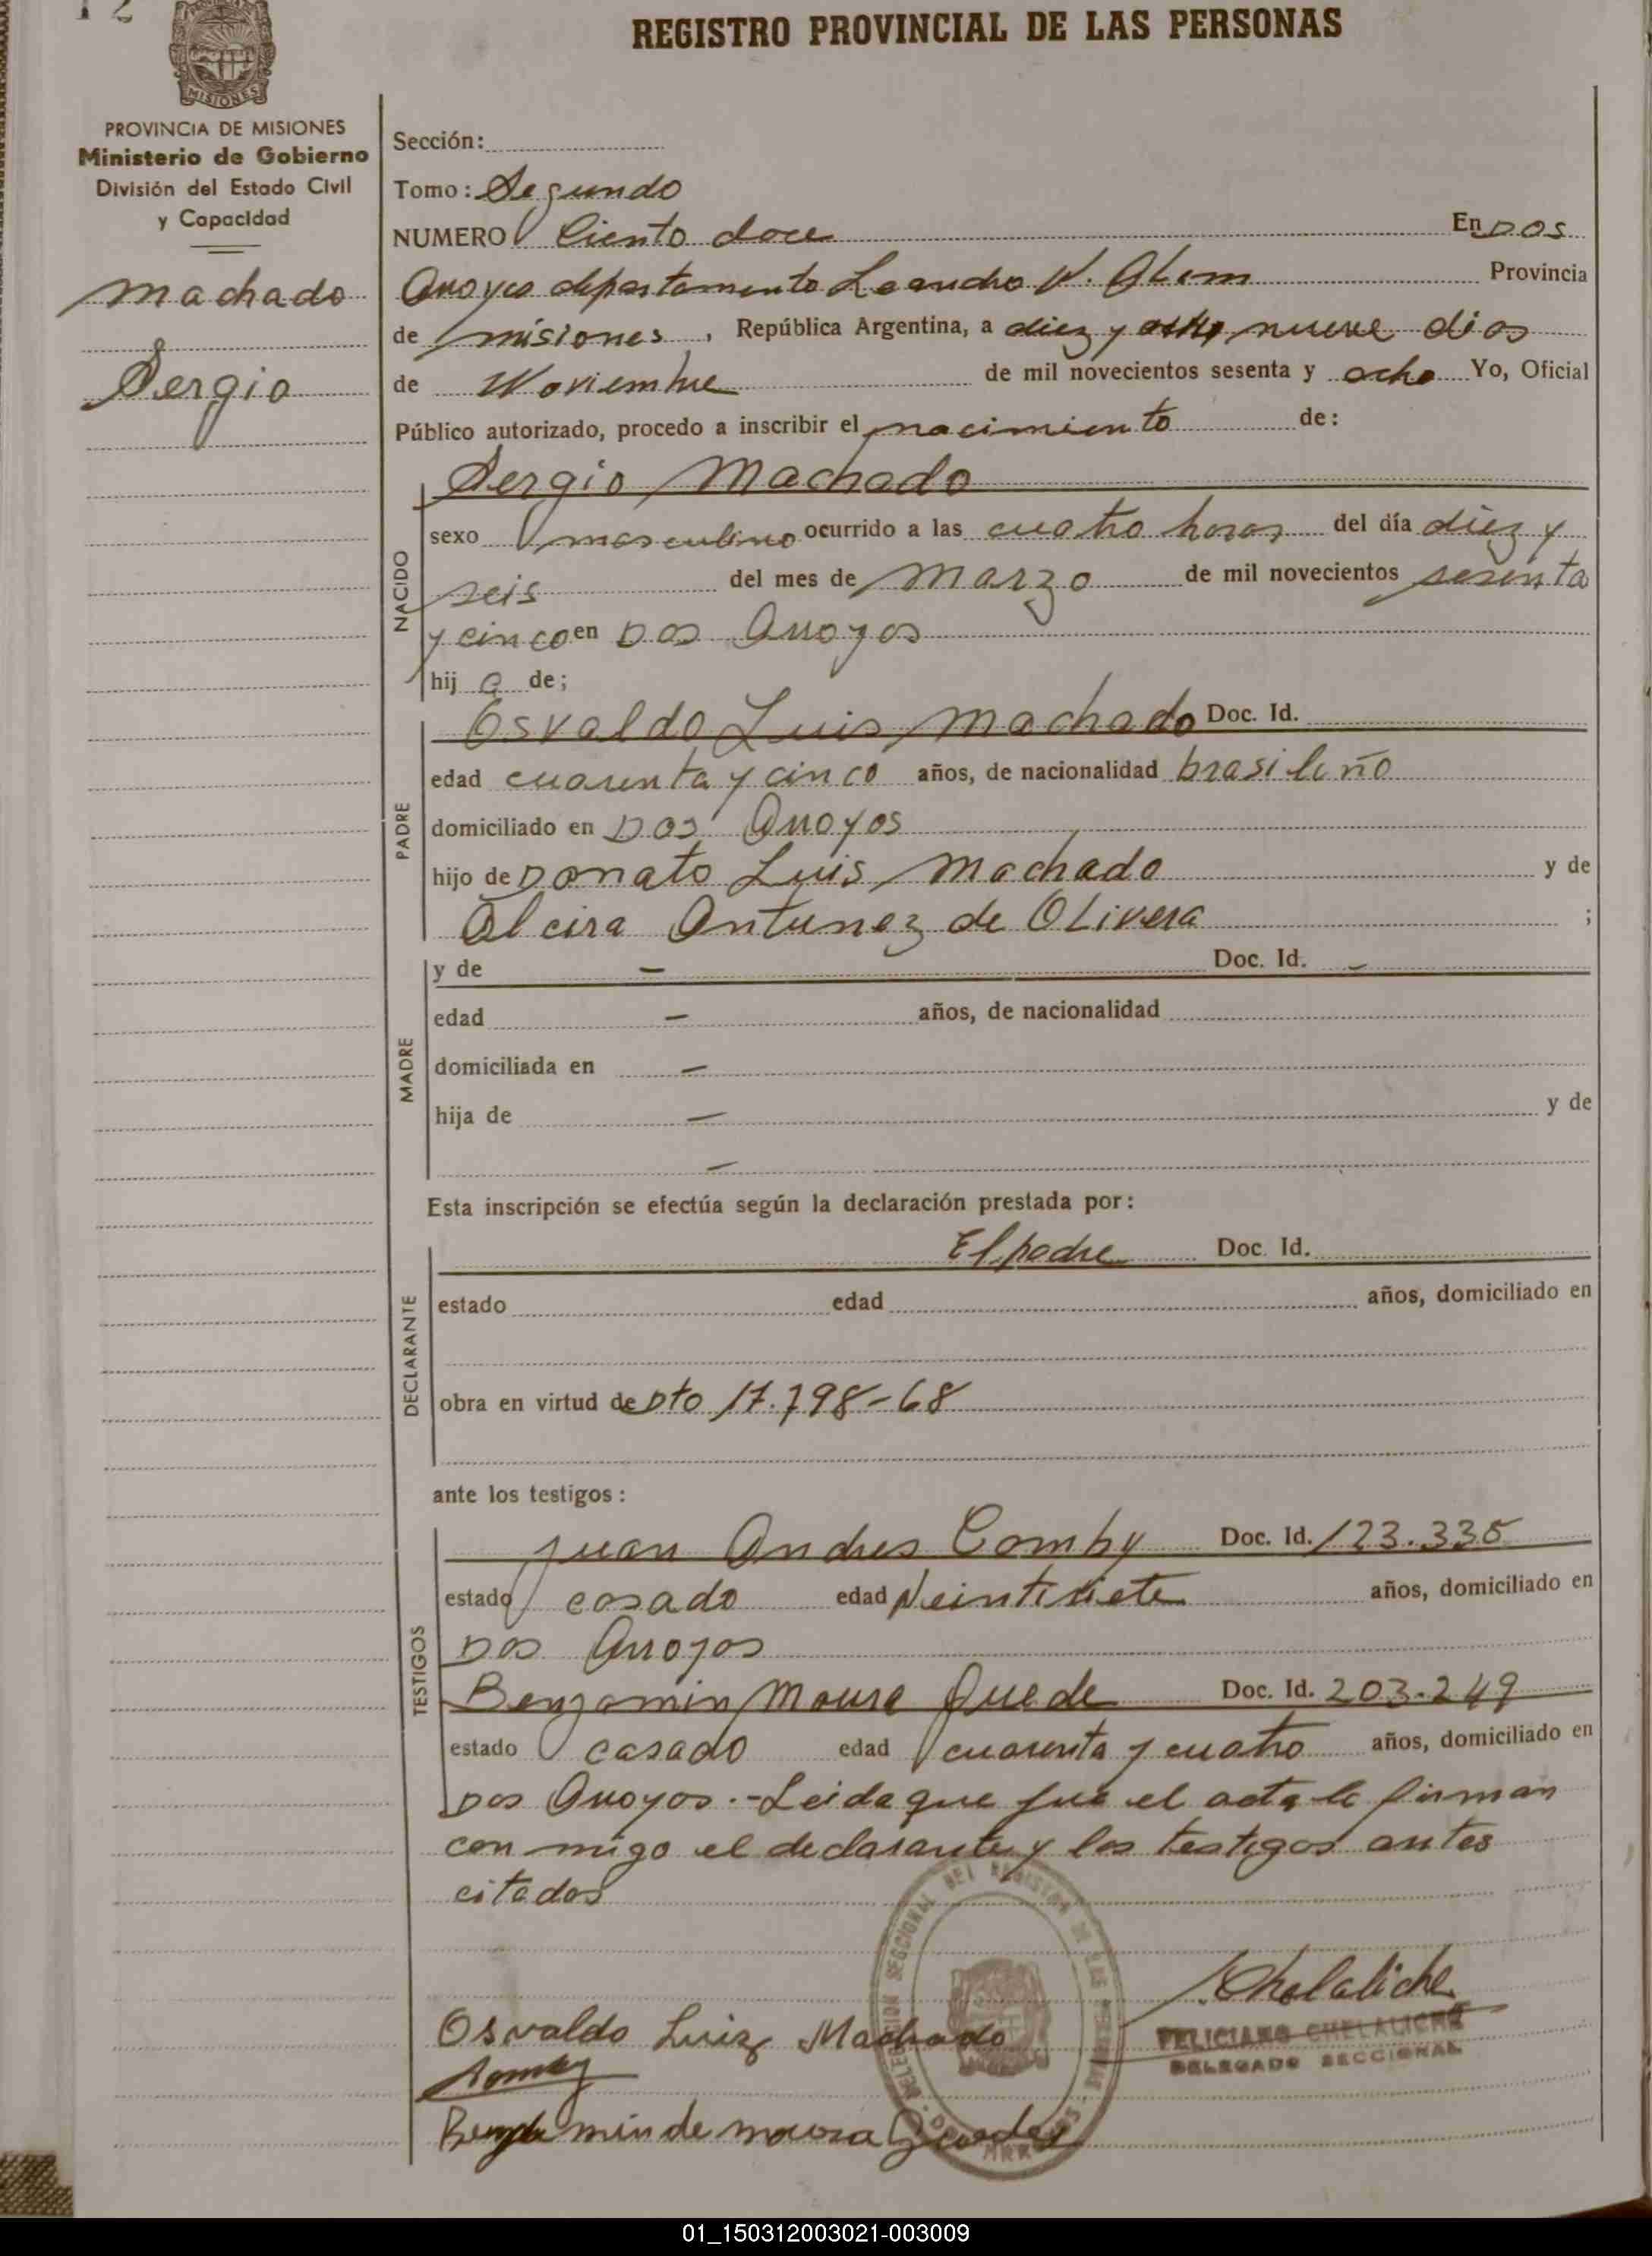 12
REGISTRO PROVINCIAL DE LAS PERSONAS
MISIONES
PROVINCIA DE MISIONES
Ministerio de Gobierno
División del Estado Civil
y Capacidad
Machado
Sergio
Sección:
Tomo: Segundo
NUMERO Ciento doce En Dos
Arroyos departamento Leandro N. Alem Provincia
de Misiones, República Argentina, a diez y nueve dias
de Noviembre de mil novecientos sesenta y ocho Yo, Oficial
Público autorizado, procedo a inscribir el nacimiento de:
Sergio Machado
NACIDO
sexo masculino ocurrido a las cuatro horas del día diez y
seis del mes de Marzo de mil novecientos sesenta
y cinco en Dos Arroyos
hij o de;
PADRE
Osvaldo Luis Machado Doc. Id.
edad cuarenta y cinco años, de nacionalidad brasileño
domiciliado en Dos Arroyos
hijo de Donato Luis Machado y de
Alcira Antunez de Olivera ;
MADRE
y de — Doc. Id. —
edad — años, de nacionalidad
domiciliada en —
hija de — y de
—
Esta inscripción se efectúa según la declaración prestada por:
DECLARANTE
El padre Doc. Id.
estado edad años, domiciliado en
obra en virtud de Dto 17.798-68
ante los testigos:
TESTIGOS
Juan Andres Comby Doc. Id. 123.335
estado casado edad Veintisiete años, domiciliado en
Dos Arroyos
Benjamin Moura Doc. Id. 203.249
estado casado edad cuarenta y cuatro años, domiciliado en
Dos Arroyos.-Leida que fue el acta la firman
con migo el declarante y los testigos antes
citados
DELEGACION SECCIONAL DEL REGISTRO DE LAS PERSONAS
Chelaliche
Osvaldo Luiz Machado
FELICIANO CHELALICHE
DELEGADO SECCIONAL
Comby
Benjamin de moura
01_150312003021-003009